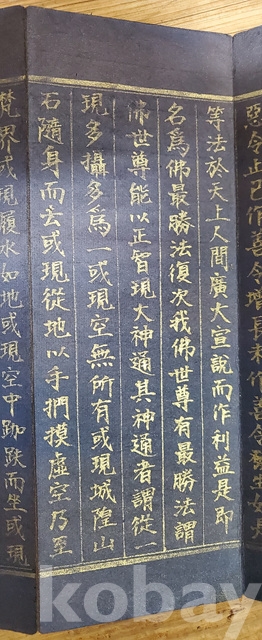 惡令止已作善令增長未作善令發生如是
等法於天上人間廣大宣說而作利益是即
名爲佛最勝法復次我佛世尊有最勝法謂
佛世尊能以正智現大神通其神通者謂從一
現多攝多爲一或現空無所有或現城隍山
石隨身而去或現從地以手捫摸虛空乃至
梵界或現履水如地或現空中跏趺而坐或現
kobay